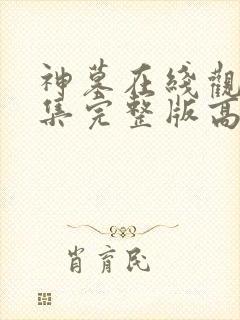 神墓在綫觀
集完整版高
肖育民